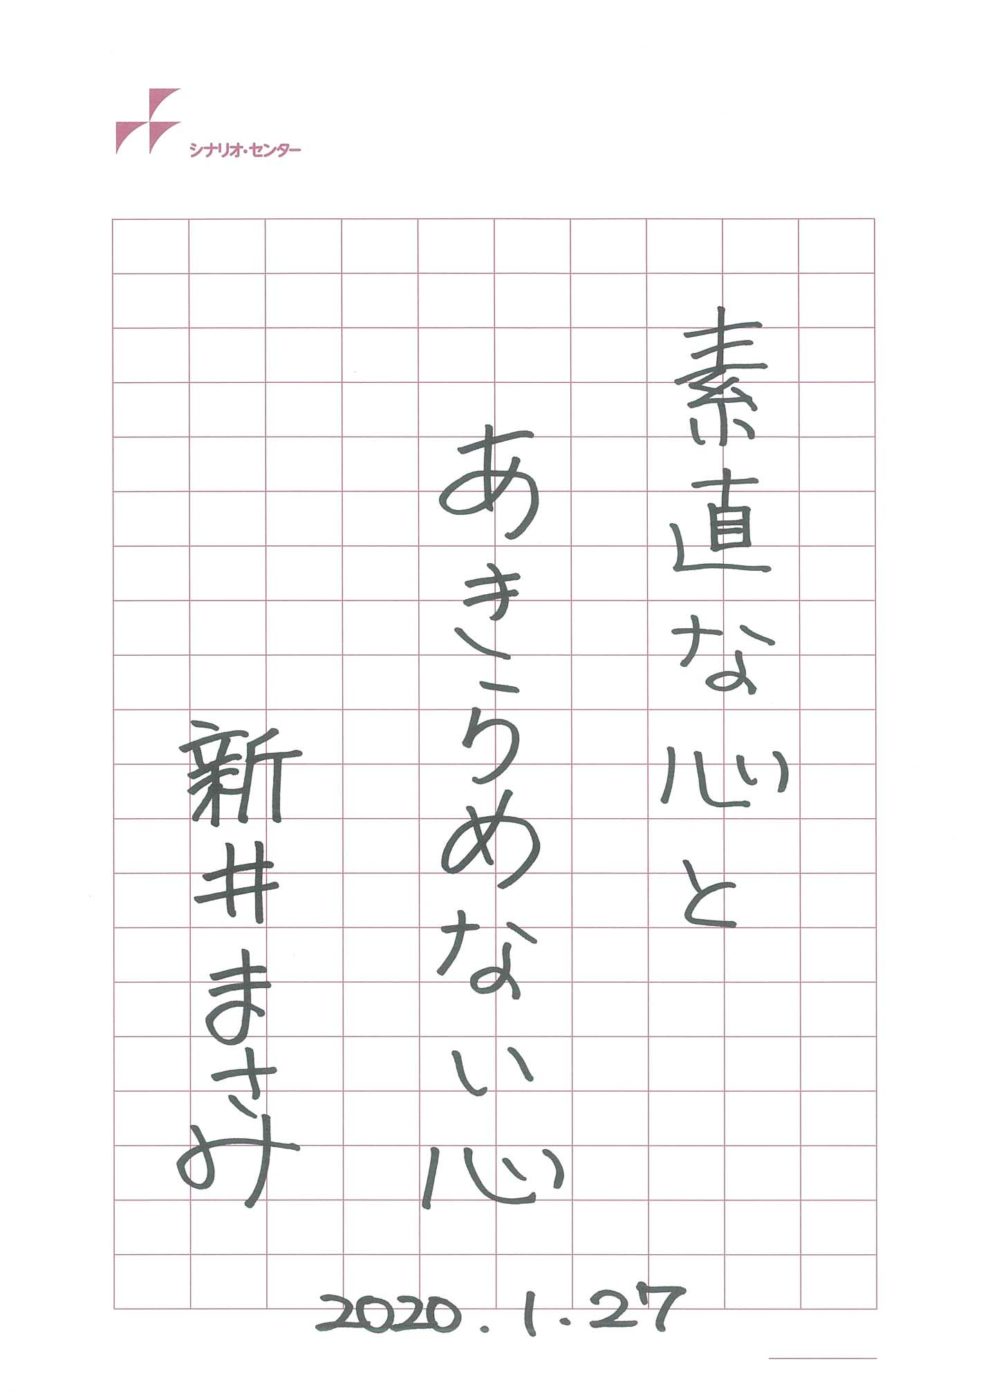 シナリオ・センター
素直な心と
あきらめない心
新井まさみ
2020.1.27